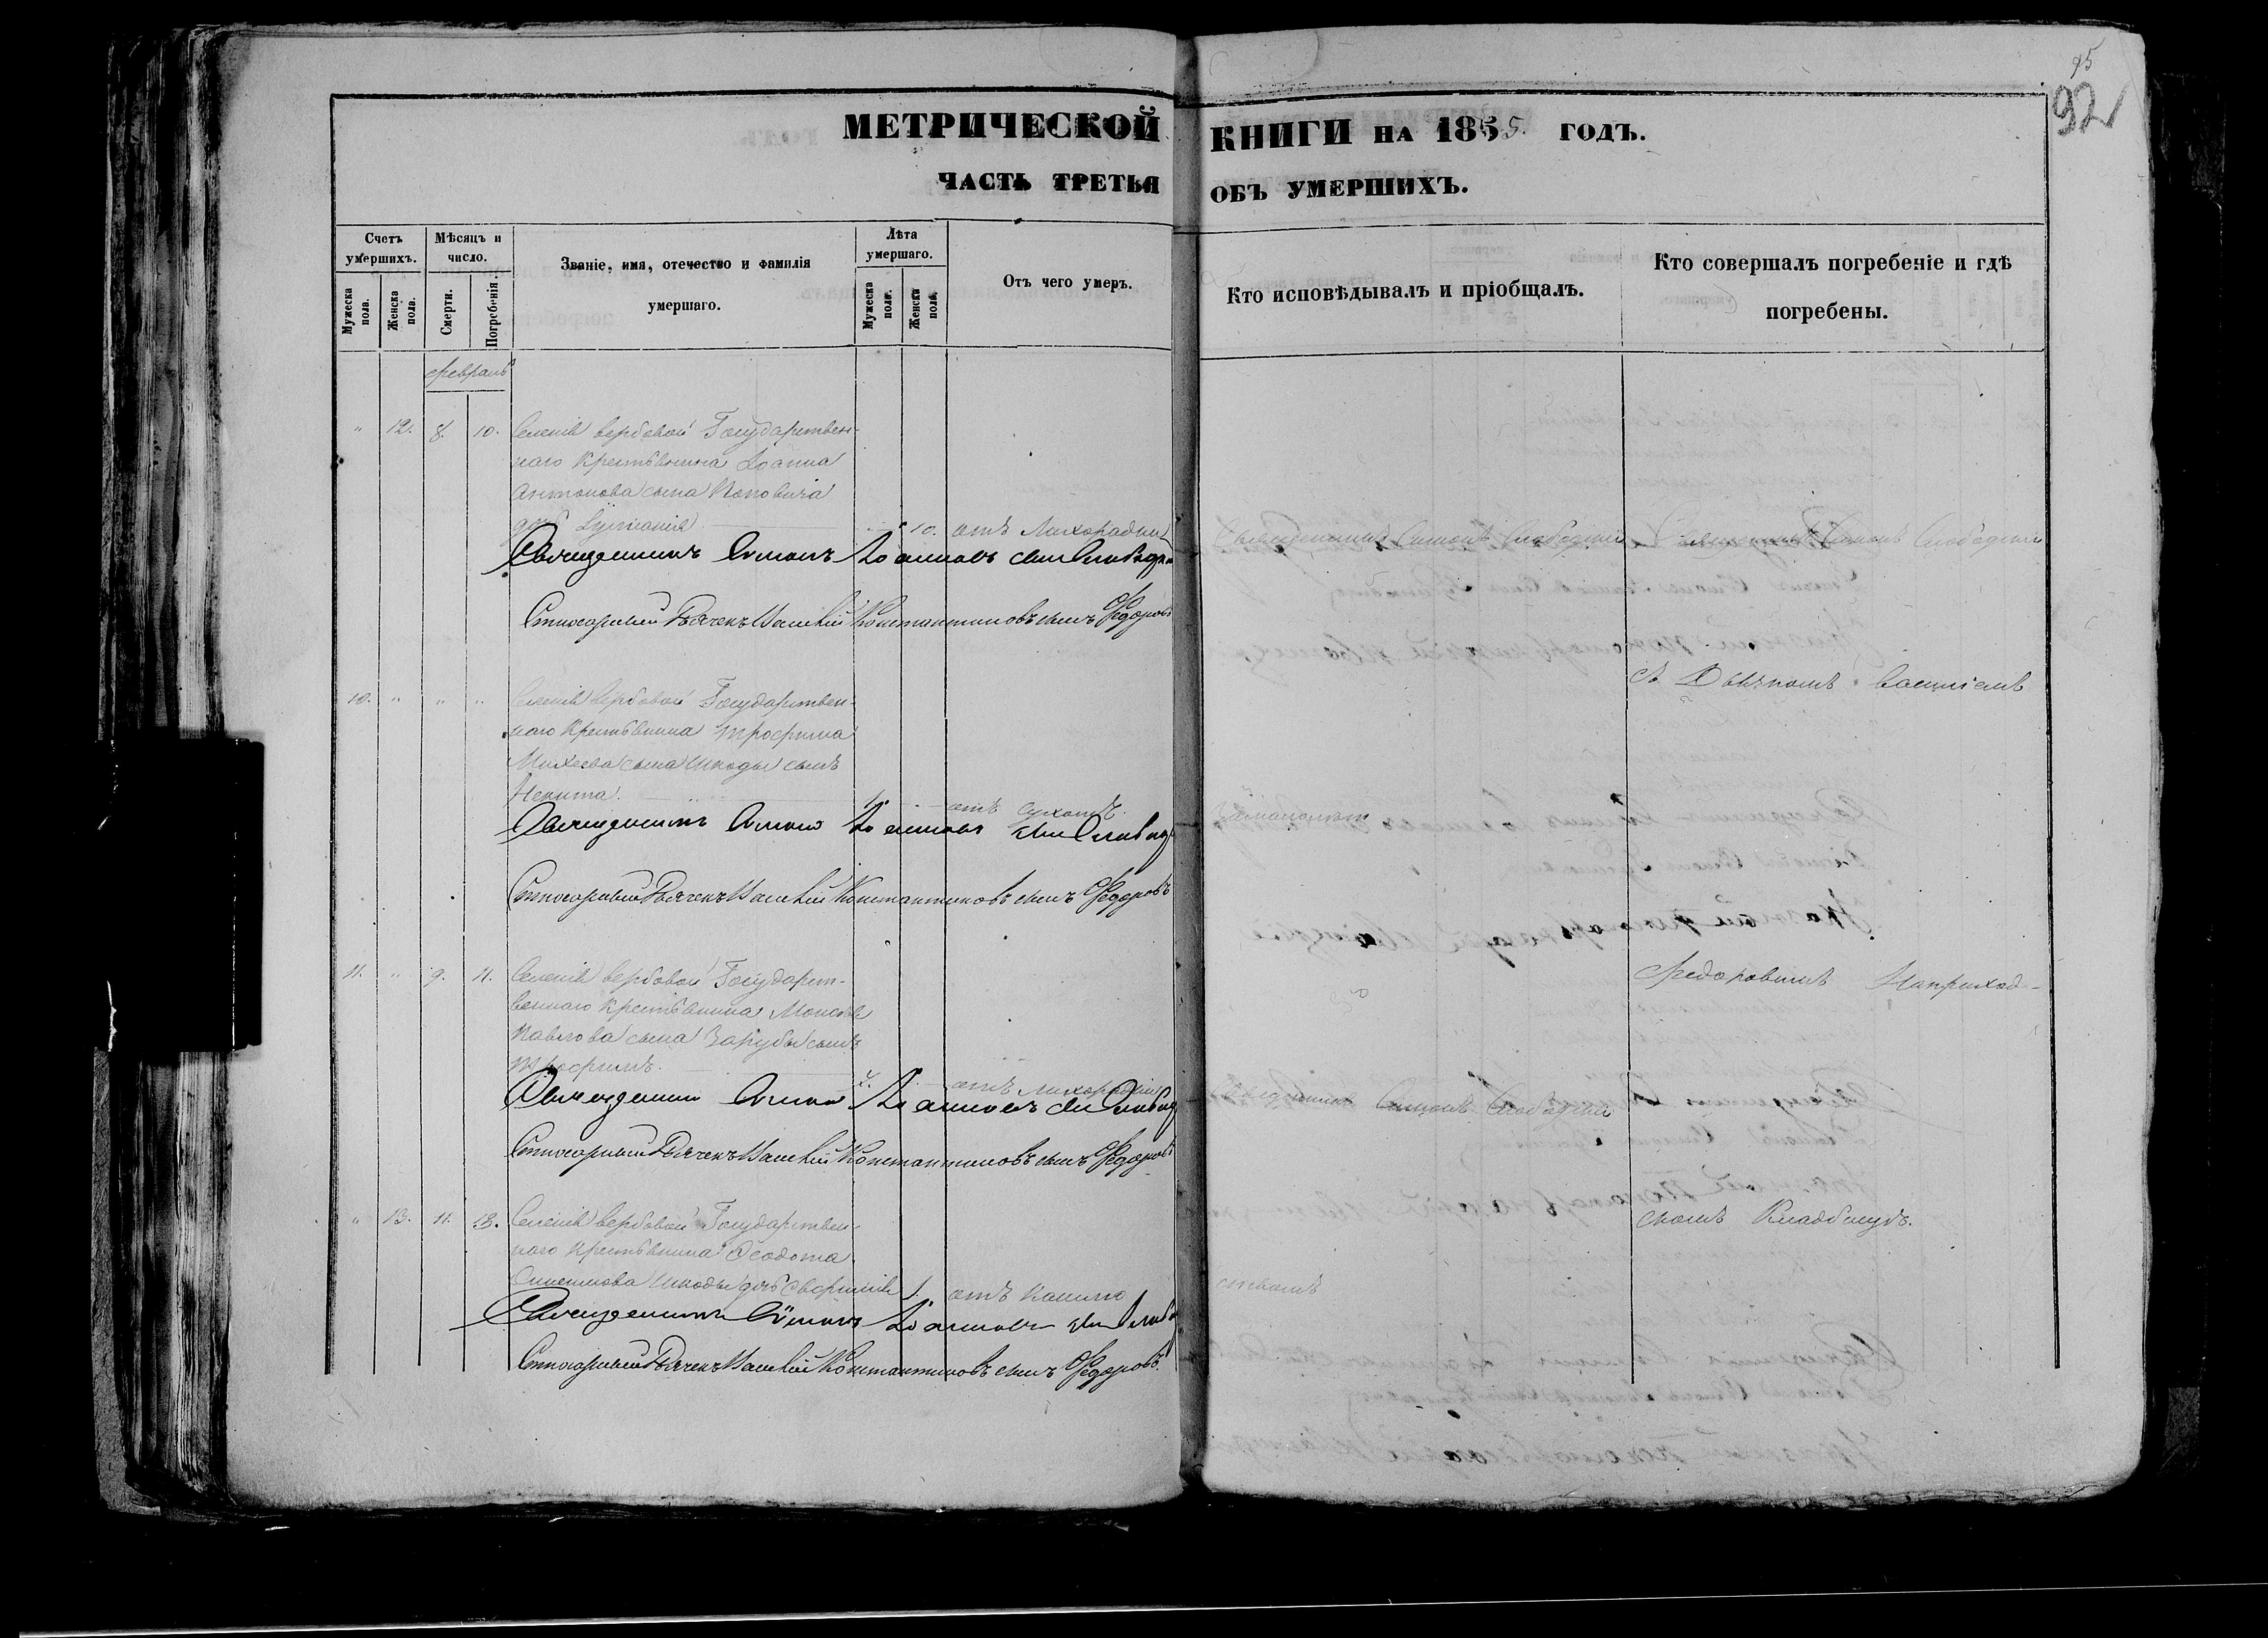 95
92
МЕТРИЧЕСКОЙ КНИГИ НА 1855. ГОДЪ.
ЧАСТЬ ТРЕТЬЯ ОБЪ УМЕРШИХЪ.
Счетъ умершихъ.
Мужеска пола.
Женска пола.
Мѣсяцъ и число.
Смерти.
Погребенія.
Званіе, имя, отечество и фамилія
умершаго.
Лѣта умершаго.
Мужеска пола.
Женска пола.
Отъ чего умеръ.
Кто исповѣдывалъ и пріобщалъ.
Кто совершалъ погребеніе и гдѣ
погребены.
февраль
" 12. 8. 10. Селенія Вербовой Государствен-
наго Крестьянина Іоанна
Антонова сына Поповича
дочь 10. отъ Лихорадки Священникъ Симонъ Священникъ Симонъ
Священникъ Симонъ Іоанновъ сынъ
Стихарный Дьячекъ Василій Константиновъ сынъ Федоровъ
съ Дьячкомъ Василіемъ
10. " " " Селенія Вербовой Государствен-
наго Крестьянина Трофима
Михеева сына Шкоды сынъ
Никита. 1. отъ сухотъ.
Священникъ Симонъ Іоанновъ сынъ
Стихарный Дьячекъ Василій Константиновъ сынъ Федоровъ
11. " 9. 11. Селенія Вербовой Государст-
веннаго Крестьянина Моисея
Павлова сына Зарубы сынъ
Трофимъ. отъ Лихорадки Священникъ Симонъ
Священникъ Симонъ Іоанновъ сынъ
Стихарный Дьячекъ Василій Константиновъ сынъ Федоровъ
Федоровымъ На приход-
" 13. 11. 13. Селенія Вербовой Государствен-
наго Крестьянина Феодота
Шкоды дочь 1. отъ Кашлю
Священникъ Симонъ Іоанновъ сынъ
Стихарный Дьячекъ Василій Константиновъ сынъ Федоровъ.
скомъ Кладбищѣ.